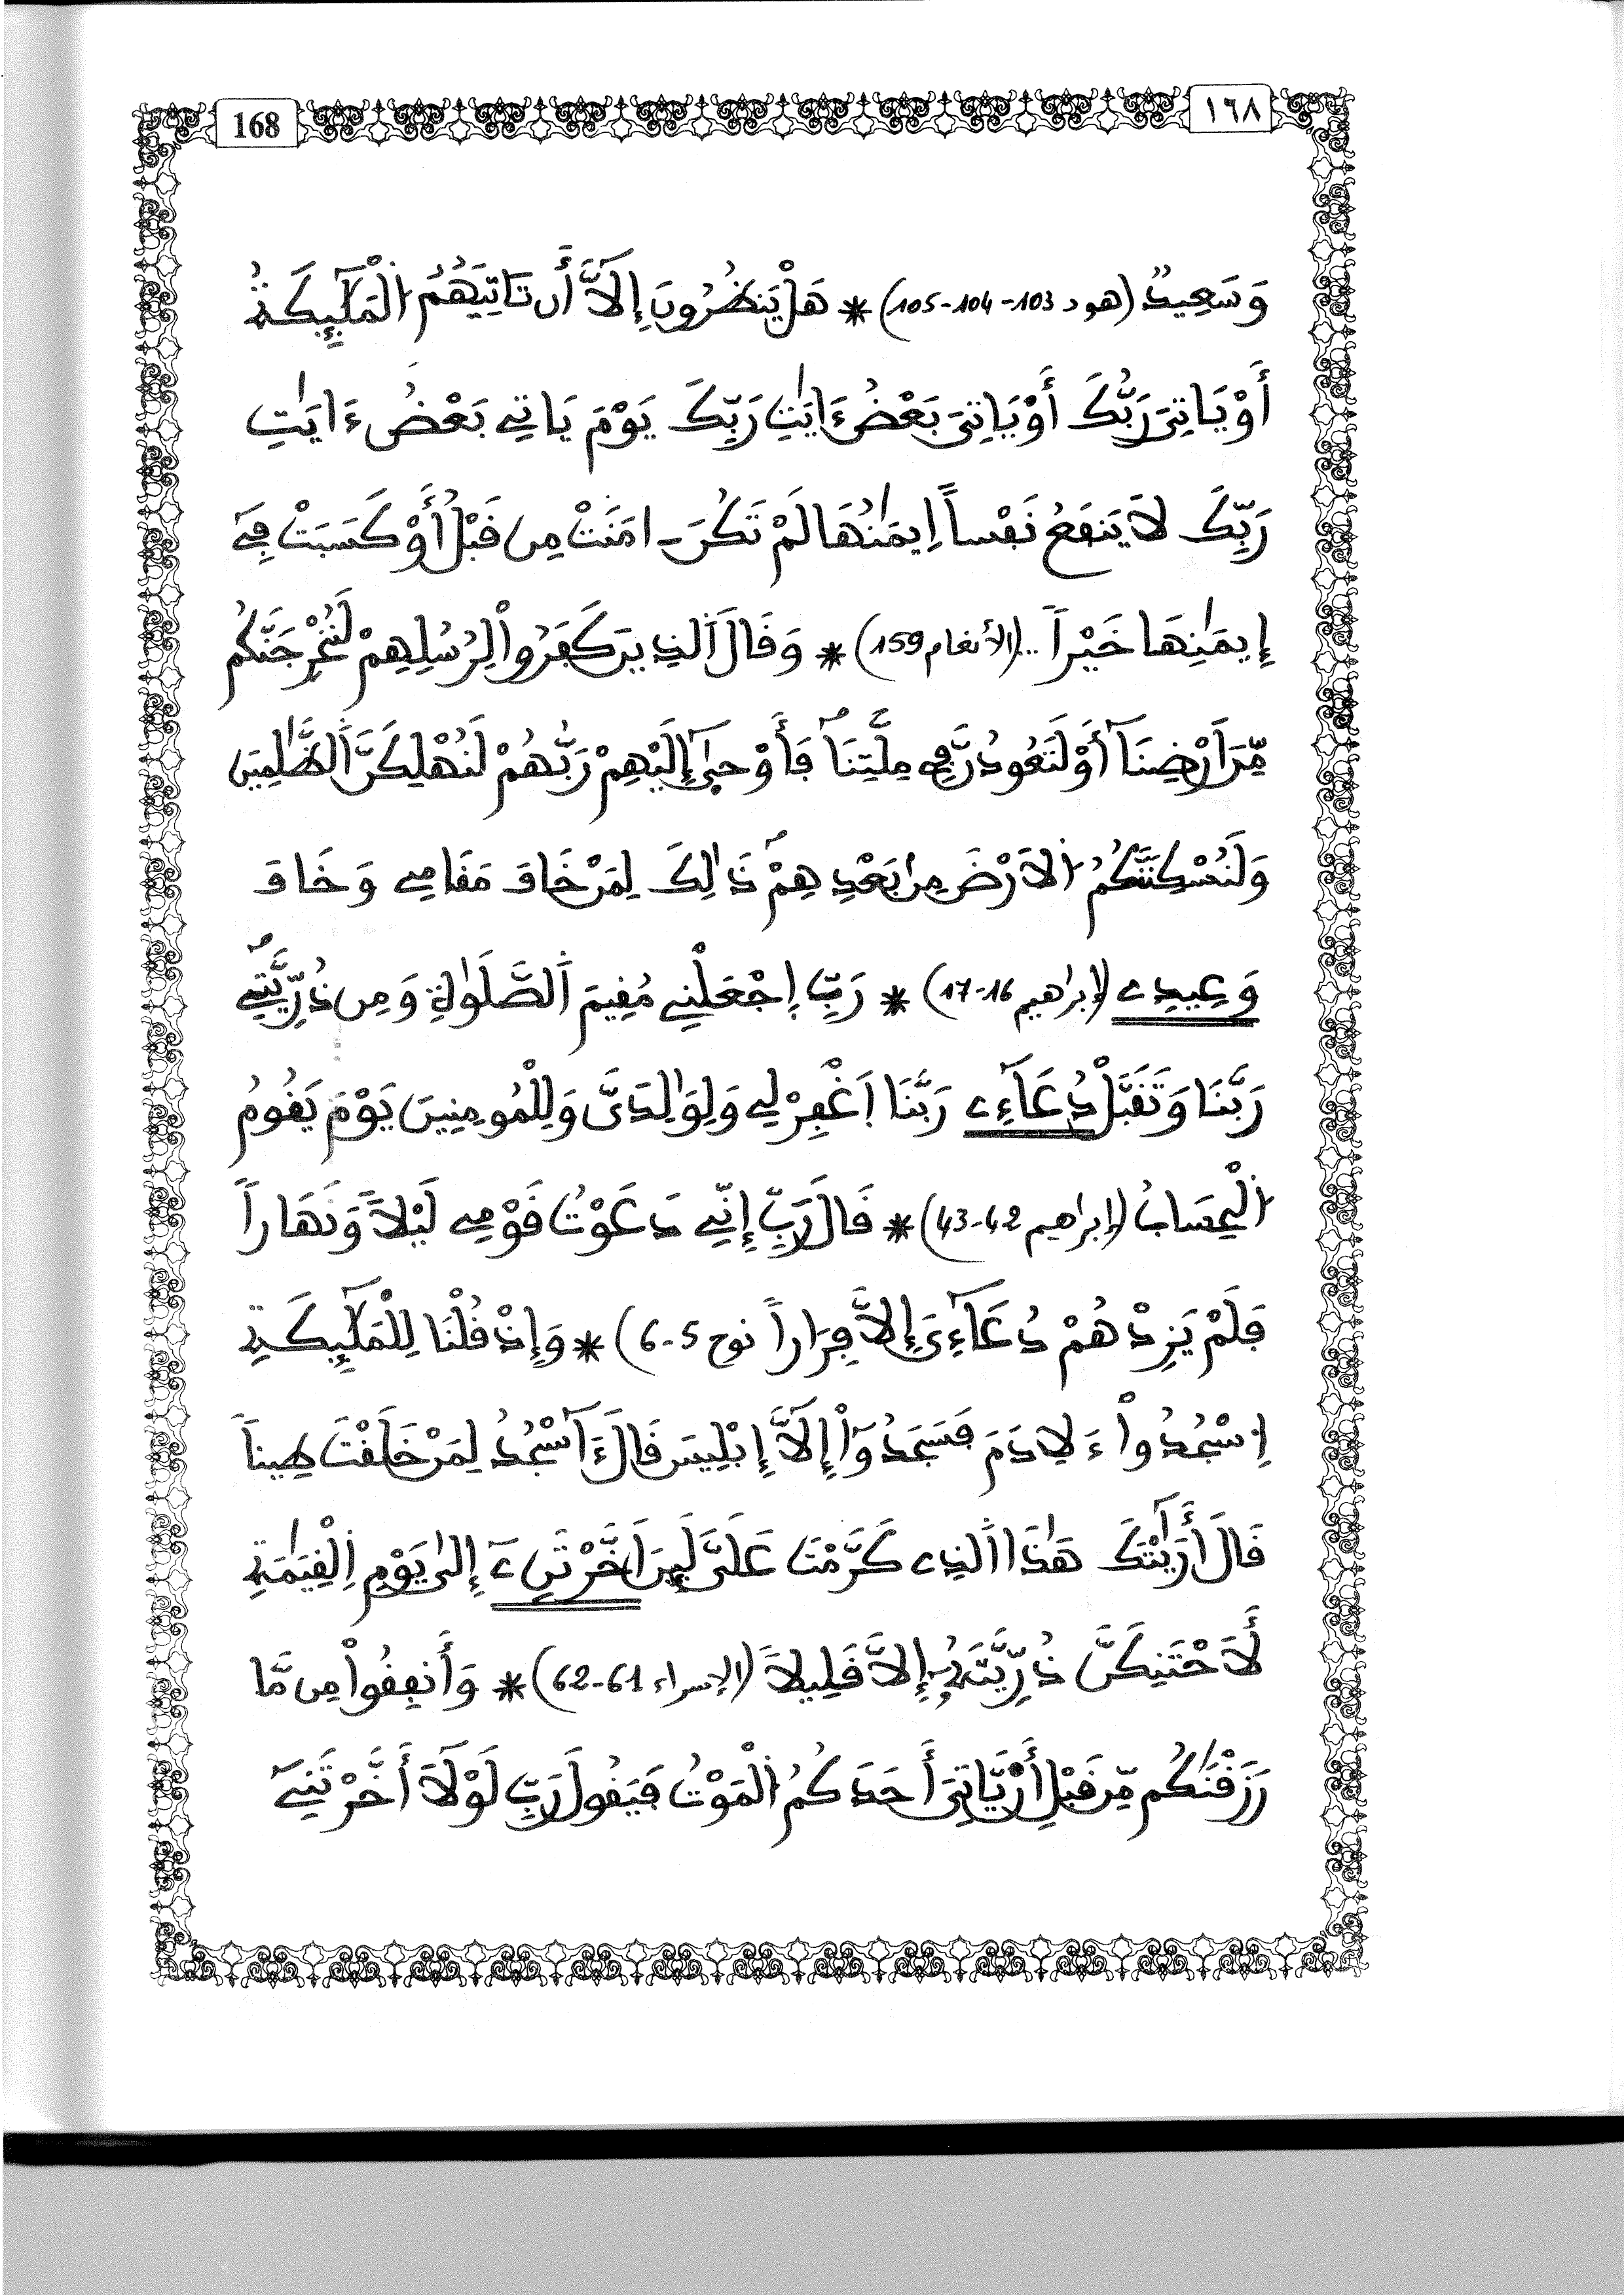 168 ١٦٨
وَسَعِيدٌ (هود 103-104-105) * هَلْ يَنظُرُونَ إِلَّآ أَن تَاتِيَهُمُ اُلْمَلَٰٓئِكَةُ
أَوْ يَاتِيَ رَبُّكَ أَوْ يَاتِيَ بَعْضُ ءَايَٰتِ رَبِّكَ يَوْمَ يَاتِے بَعْضُ ءَايَٰتِ
رَبِّكَ لَا يَنفَعُ نَفْساً اِيمَٰنُهَا لَمْ تَكُنَ ـ امَنَتْ مِن قَبْلُ أَوْ كَسَبَتْ فِےٓ
إِيمَٰنِهَا خَيْراً ...(الأنعام 159) * وَقَالَ اَلذِينَ كَفَرُواْ لِرُسُلِهِمْ لَنُخْرِجَنَّكُم
مِّنَ اَرْضِنَآ أَوْ لَتَعُودُنَّ فِے مِلَّتِنَاۖ فَأَوْحَىٰٓ إِلَيْهِمْ رَبُّهُمْ لَنُهْلِكَنَّ اَلظَّٰلِمِينَ
وَلَنُسْكِنَنَّكُمُ اُلَارْضَ مِنۢ بَعْدِهِمْۖ ذَٰلِكَ لِمَنْ خَافَ مَقَامِے وَخَافَ
وَعِيدِے (إبراهيم 16-17) * رَبِّ اِجْعَلْنِے مُقِيمَ اَلصَّلَوٰةِ وَمِن ذُرِّيَّتِےۖ
رَبَّنَا وَتَقَبَّلْ دُعَآءِے رَبَّنَا اَغْفِرْ لِے وَلِوَٰلِدَيَّ وَلِلْمُومِنِينَ يَوْمَ يَقُومُ
اُلْحِسَابُ (إبراهيم 42-43) * قَالَ رَبِّ إِنِّے دَعَوْتُ قَوْمِے لَيْلاً وَنَهَاراً
فَلَمْ يَزِدْهُمْ دُعَآءِيَ إِلَّا فِرَاراً نوح 5-6) * وَإِذْ قُلْنَا لِلْمَلَٰٓئِكَةِ
اِسْجُدُواْ ءَلِادَمَ فَسَجَدُوٓاْ إِلَّآ إِبْلِيسَ قَالَ ءَآسْجُدُ لِمَنْ خَلَقْتَ طِيناً
قَالَ أَرَٰٓيْتَكَ هَٰذَا اَلذِے كَرَّمْتَ عَلَيَّ لَئِنَ اَخَّرْتَنِےٓ إِلَىٰ يَوْمِ اِلْقِيَٰمَةِ
لَأَحْتَنِكَنَّ ذُرِّيَّتَهُۥٓ إِلَّا قَلِيلاً (الإسراء 61-62) * وَأَنفِقُواْ مِن مَّا
رَزَقْنَٰكُم مِّن قَبْلِ أَنْ يَّاتِيَ أَحَدَكُمُ اُلْمَوْتُ فَيَقُولَ رَبِّ لَوْلَآ أَخَّرْتَنِےٓ